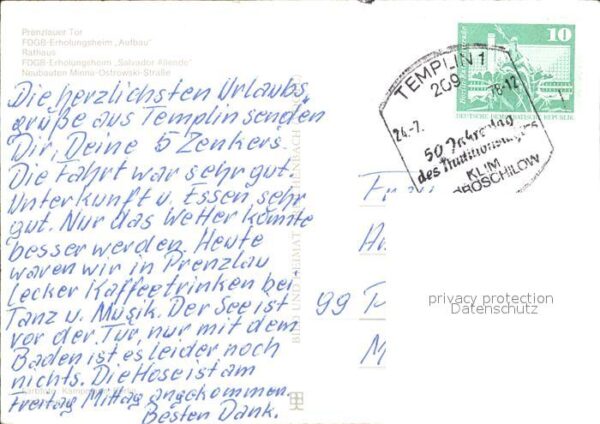 Prenzlauer Tor
FDGB-Erholungsheim „Aufbau"
Rathaus
FDGB-Erholungsheim „Salvador Allende"
Neubauten Minna-Ostrowski-Straße
Die herzlichsten Urlaubs
grüße aus Templin senden
Dir, Deine 5 Zenkers.
Die Fahrt war sehr gut.
Unterkunft u. Essen sehr
gut. Nur das Wetter könnte
besser werden. Heute
waren wir in Prenzlau
lecker Kaffeetrinken bei
Tanz u. Musik. Der See ist
vor der Tür, nur mit dem
Baden ist es leider noch
nichts. Die Hose ist am
Freitag Mittag angekommen.
Besten Dank.
BILD UND HEIMAT
TEMPLIN 1
209
24.-7.
18-12
50. Jahrestag
des Traditionslagers
KLIM
WOROSCHILOW
10
DEUTSCHE DEMOKRATISCHE REPUBLIK
99
privacy protection
Datenschutz